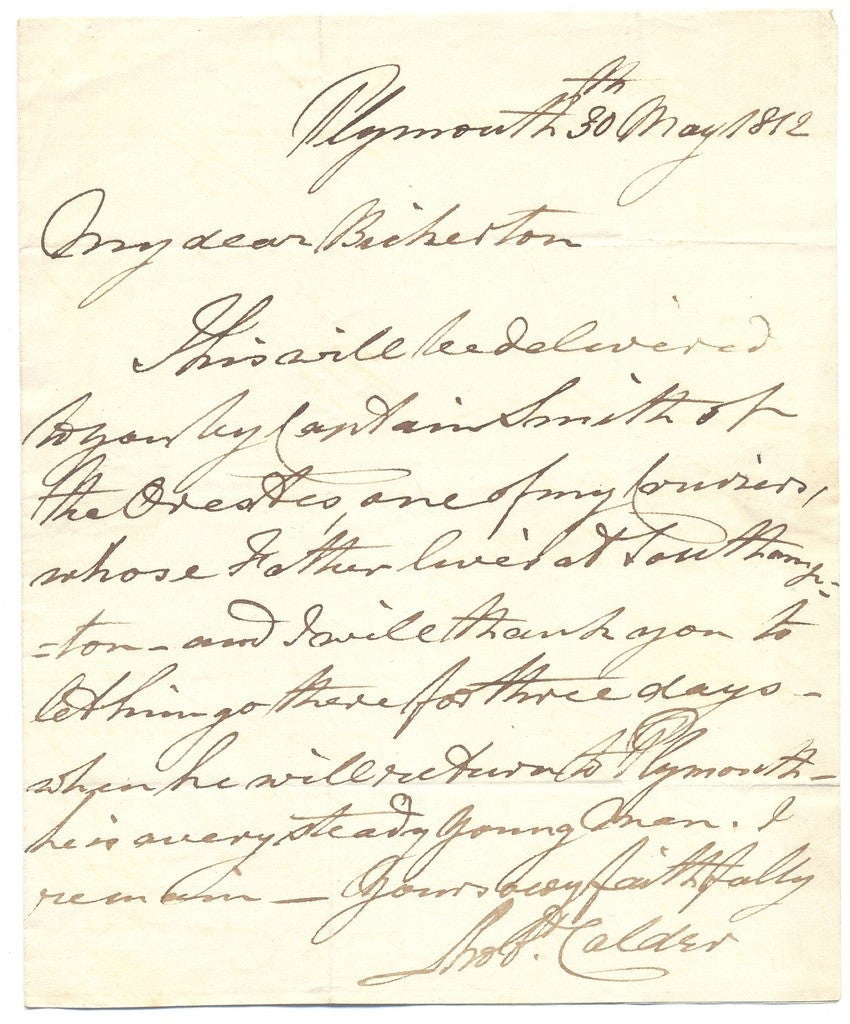 Plymouth 30th May 1812
My dear Bickerton
This will be delivered
to you by Captain Smith of
the Orestes, one of my Cruizers,
whose Father lives at Southamp=
=ton - and I will thank you to
let him go there for three days -
when he will return to Plymouth -
he is a very steady Young Man. I
remain — Yours very faithfully
Robt. Calder